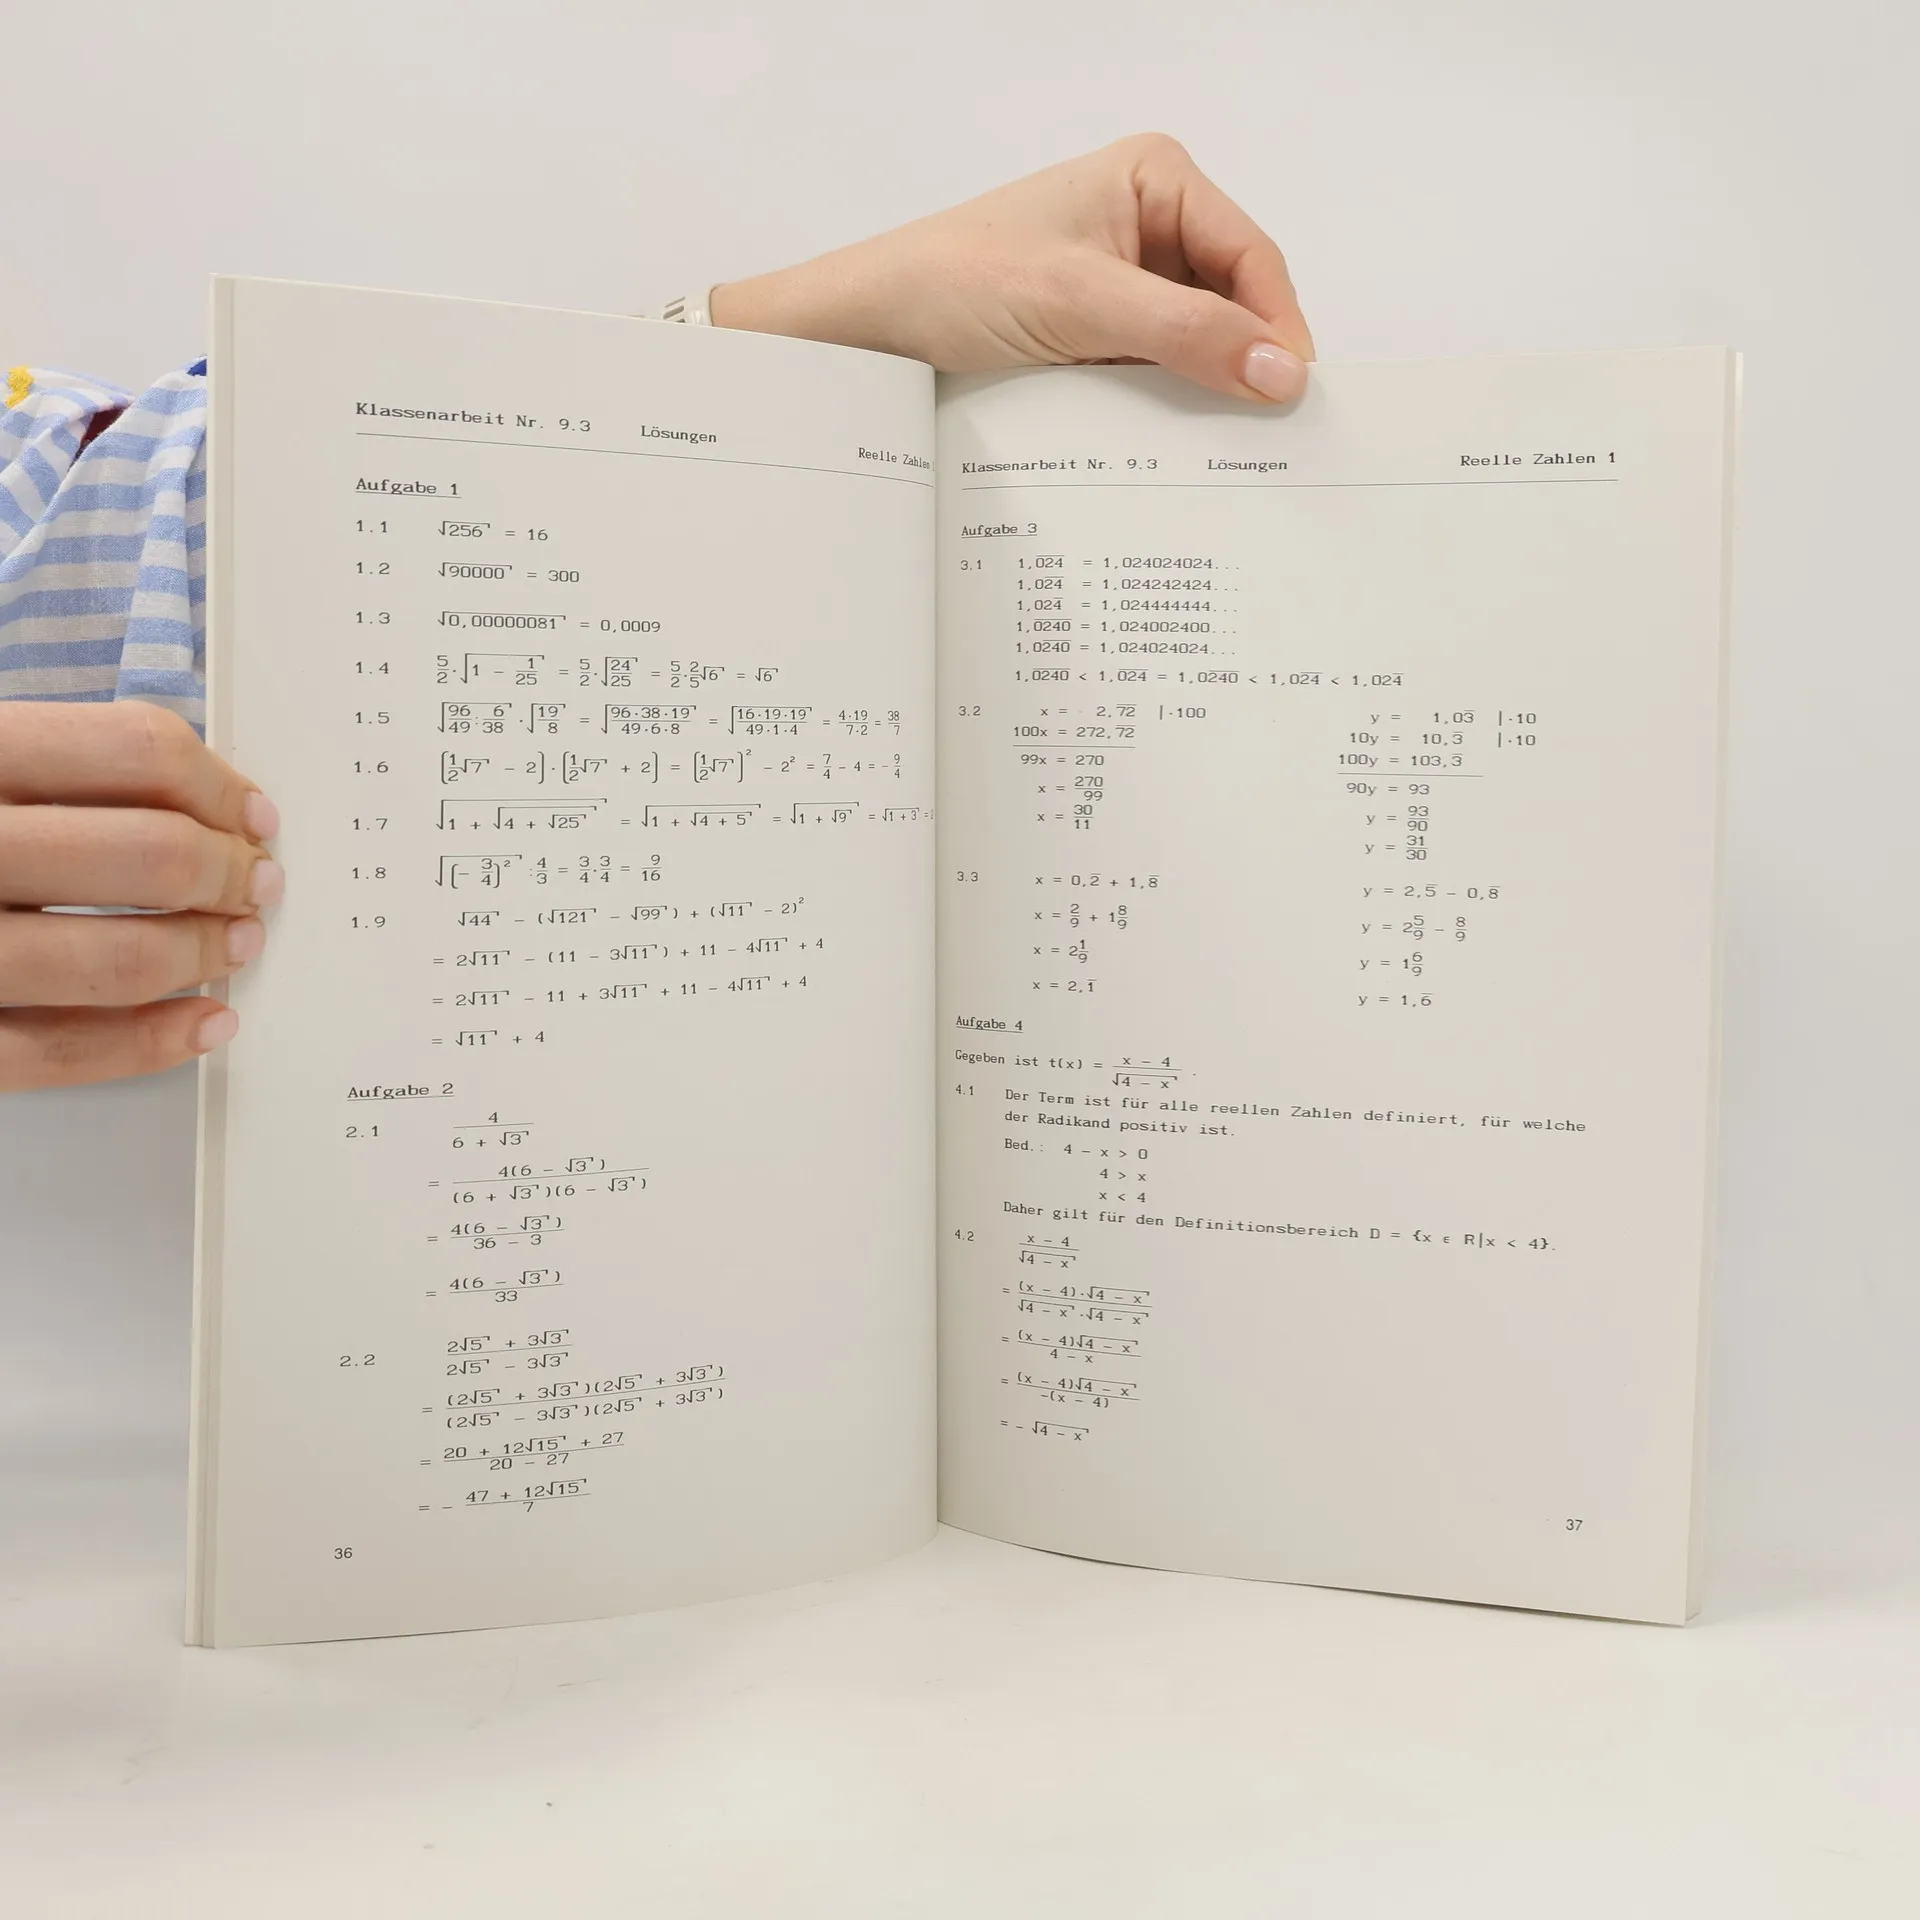 Klassenarbeit Nr. 9.3 Lösungen Reelle Zahlen 1
Aufgabe 1
1.1 √256 = 16
1.2 √90000 = 300
1.3 √0,00000081 = 0,0009
1.4 5/2·√(1 - 1/25) = 5/2·√(24/25) = 5/2·2/5√6 = √6
1.5 √(96/49 : 6/38)·√(19/8) = √((96·38·19)/(49·6·8)) = √((16·19·19)/(49·1·4)) = (4·19)/(7·2) = 38/7
1.6 (1/2√7 - 2)·(1/2√7 + 2) = (1/2√7)² - 2² = 7/4 - 4 = -9/4
1.7 √(1 + √(4 + √25)) = √(1 + √(4 + 5)) = √(1 + √9) = √(1 + 3) =
1.8 √((- 3/4)²) : 4/3 = 3/4·3/4 = 9/16
1.9 √44 - (√121 - √99) + (√11 - 2)²
= 2√11 - (11 - 3√11) + 11 - 4√11 + 4
= 2√11 - 11 + 3√11 + 11 - 4√11 + 4
= √11 + 4
Aufgabe 2
2.1 4/(6 + √3)
= 4(6 - √3)/((6 + √3)(6 - √3))
= 4(6 - √3)/(36 - 3)
= 4(6 - √3)/33
2.2 (2√5 + 3√3)/(2√5 - 3√3)
= (2√5 + 3√3)(2√5 + 3√3)/((2√5 - 3√3)(2√5 + 3√3))
= (20 + 12√15 + 27)/(20 - 27)
= - (47 + 12√15)/7
36
Klassenarbeit Nr. 9.3 Lösungen Reelle Zahlen 1
Aufgabe 3
3.1 1,0̅2̅4̅ = 1,024024024...
1,02̅4̅ = 1,024242424...
1,024̅ = 1,024444444...
1,0̅2̅4̅0̅ = 1,024002400...
1,02̅4̅0̅ = 1,024024024...
1,0̅2̅4̅0̅ < 1,0̅2̅4̅ = 1,02̅4̅0̅ < 1,02̅4̅ < 1,024̅
3.2 x = 2,7̅2̅ |·100 y = 1,03̅ |·10
100x = 272,7̅2̅ 10y = 10,3̅ |·10
100y = 103,3̅
99x = 270 90y = 93
x = 270/99 y = 93/90
x = 30/11 y = 31/30
3.3 x = 0,2̅ + 1,8̅ y = 2,5̅ - 0,8̅
x = 2/9 + 1 8/9 y = 2 5/9 - 8/9
x = 2 1/9 y = 1 6/9
x = 2,1̅ y = 1,6̅
Aufgabe 4
Gegeben ist t(x) = (x - 4)/√(4 - x) .
4.1 Der Term ist für alle reellen Zahlen definiert, für welche
der Radikand positiv ist.
Bed.: 4 - x > 0
4 > x
x < 4
Daher gilt für den Definitionsbereich D = {x ϵ R|x < 4}.
4.2 (x - 4)/√(4 - x)
= (x - 4)·√(4 - x)/(√(4 - x)·√(4 - x))
= (x - 4)√(4 - x)/(4 - x)
= (x - 4)√(4 - x)/(-(x - 4))
= - √(4 - x)
37